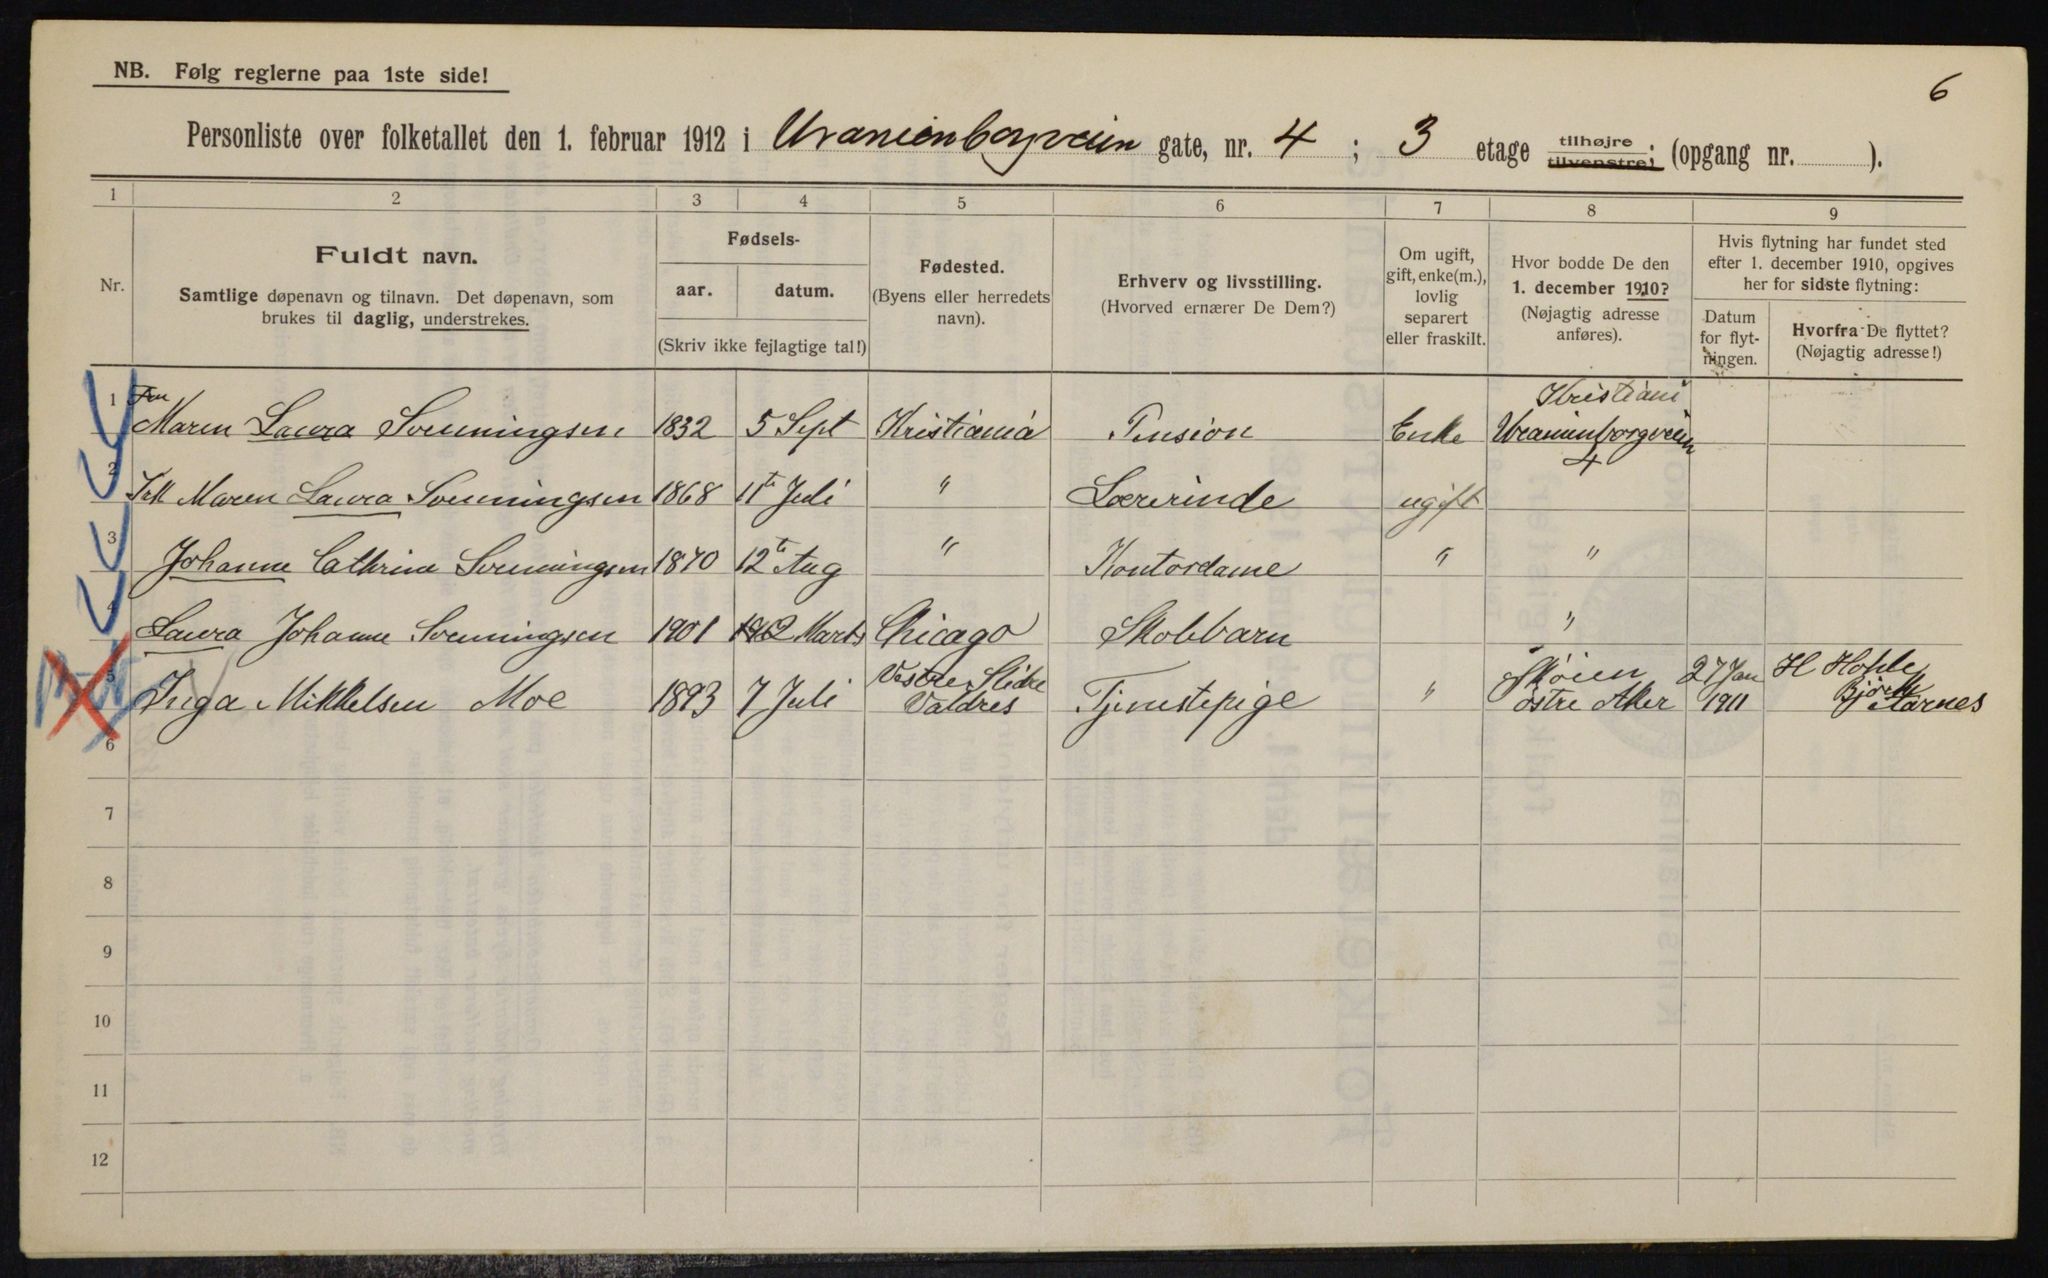 NB. Følg reglerne paa 1ste side!
6
Personliste over folketallet den 1. februar 1912 i Uranienborgveien gate, nr. 4 ; 3 etage tilhøjre. tilvenstre; (opgang nr. ).
1 2 3 4 5 6 7 8 9
Nr.
Fuldt navn.
Samtlige døpenavn og tilnavn. Det døpenavn, som
brukes til daglig, understrekes.
Fødsels-
aar. datum.
(Skriv ikke fejlagtige tal!)
Fødested.
(Byens eller herredets
navn).
Erhverv og livsstilling.
(Hvorved ernærer De Dem?)
Om ugift,
gift, enke(m.),
lovlig
separert
eller fraskilt.
Hvor bodde De den
1. december 1910?
(Nøjagtig adresse
anføres).
Hvis flytning har fundet sted
efter 1. december 1910, opgives
her for sidste flytning:
Datum
for flyt-
ningen.
Hvorfra De flyttet?
(Nøjagtig adresse!)
1 Fru Kristiani
Maren Laura Svenningsen 1832 5 Sept Kristiania Pension Enke Uranienborgveien
4
2
Frk Maren Laura Svenningsen 1868 11te Juli " Lærerinde ugift
3
Johanne Cathrine Svenningsen 1870 12te Aug " Kontordame " "
4
Laura Johanne Svenningsen 1901 2 Marts Chicago Skolebarn "
5 Vestre Slidre Skøien 27 Jan H Hohle
Inga Mikkelsen Moe 1893 7 Juli Valdres Tjenestepige " østre Aker 1911 Aarnes
6
7
8
9
10
11
12